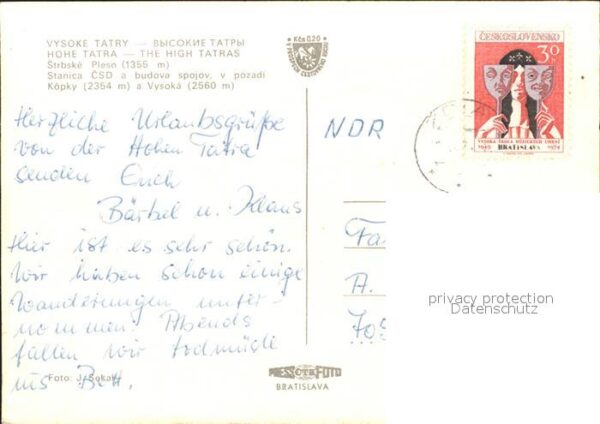 VYSOKÉ TATRY — ВЫСОКИЕ ТАТРЫ
HOHE TATRA — THE HIGH TATRAS
Štrbské Pleso (1355 m)
Stanica ČSD a budova spojov, v pozadí
Kôpky (2354 m) a Vysoká (2560 m)
Kčs 0,20
ČESKOSLOVENSKO
30
h
VYSOKÁ ŠKOLA MÚZICKÝCH UMENÍ
1949 BRATISLAVA 1974
Herzliche Urlaubsgrüße
von der Hohen Tatra
senden Euch
Bärbel u. Klaus
Hier ist es sehr schön.
Wir haben schon einige
Wanderungen unter-
nommen. Abends
fallen wir todmüde
ins Bett.
NDR
Fa
A.
privacy protection
Datenschutz
PRESSFOTO
BRATISLAVA